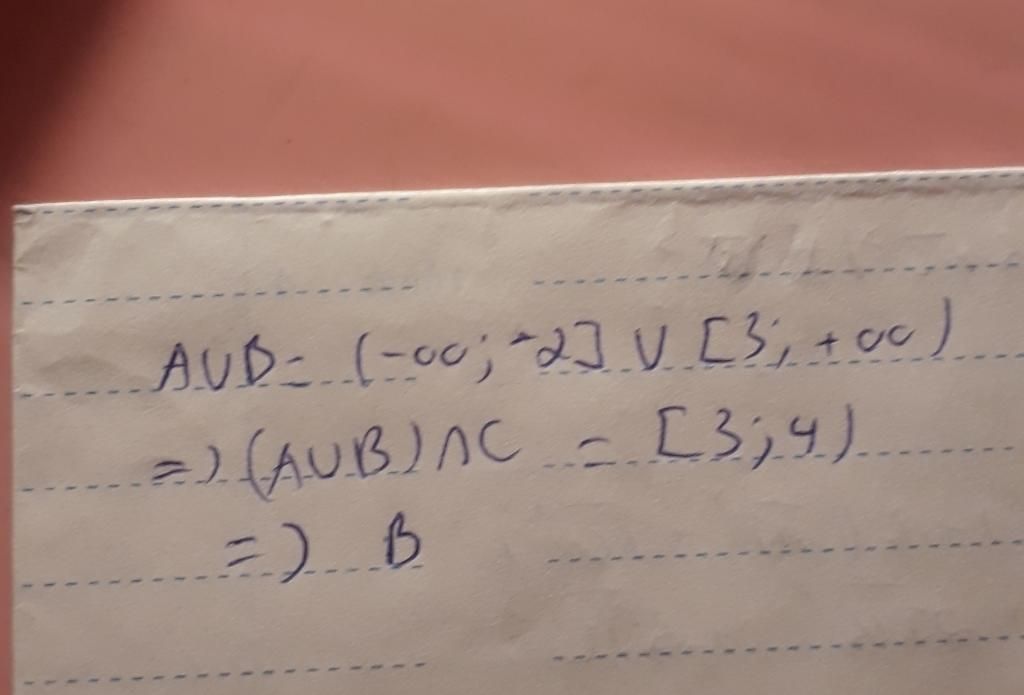 A∪B = (-∞; -2] ∪ [3; +∞)
=) (A∪B)∩C = [3; 4)
=) B